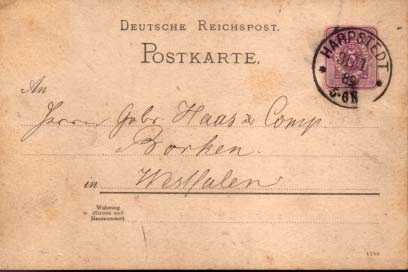 DEUTSCHE REICHSPOST.
POSTKARTE.
HARPSTEDT
30/1
89
5-6N
An
Herrn Gebr. Haas & Comp
Borken
in Westfalen
Wohnung
(Strasse und
Hausnummer)